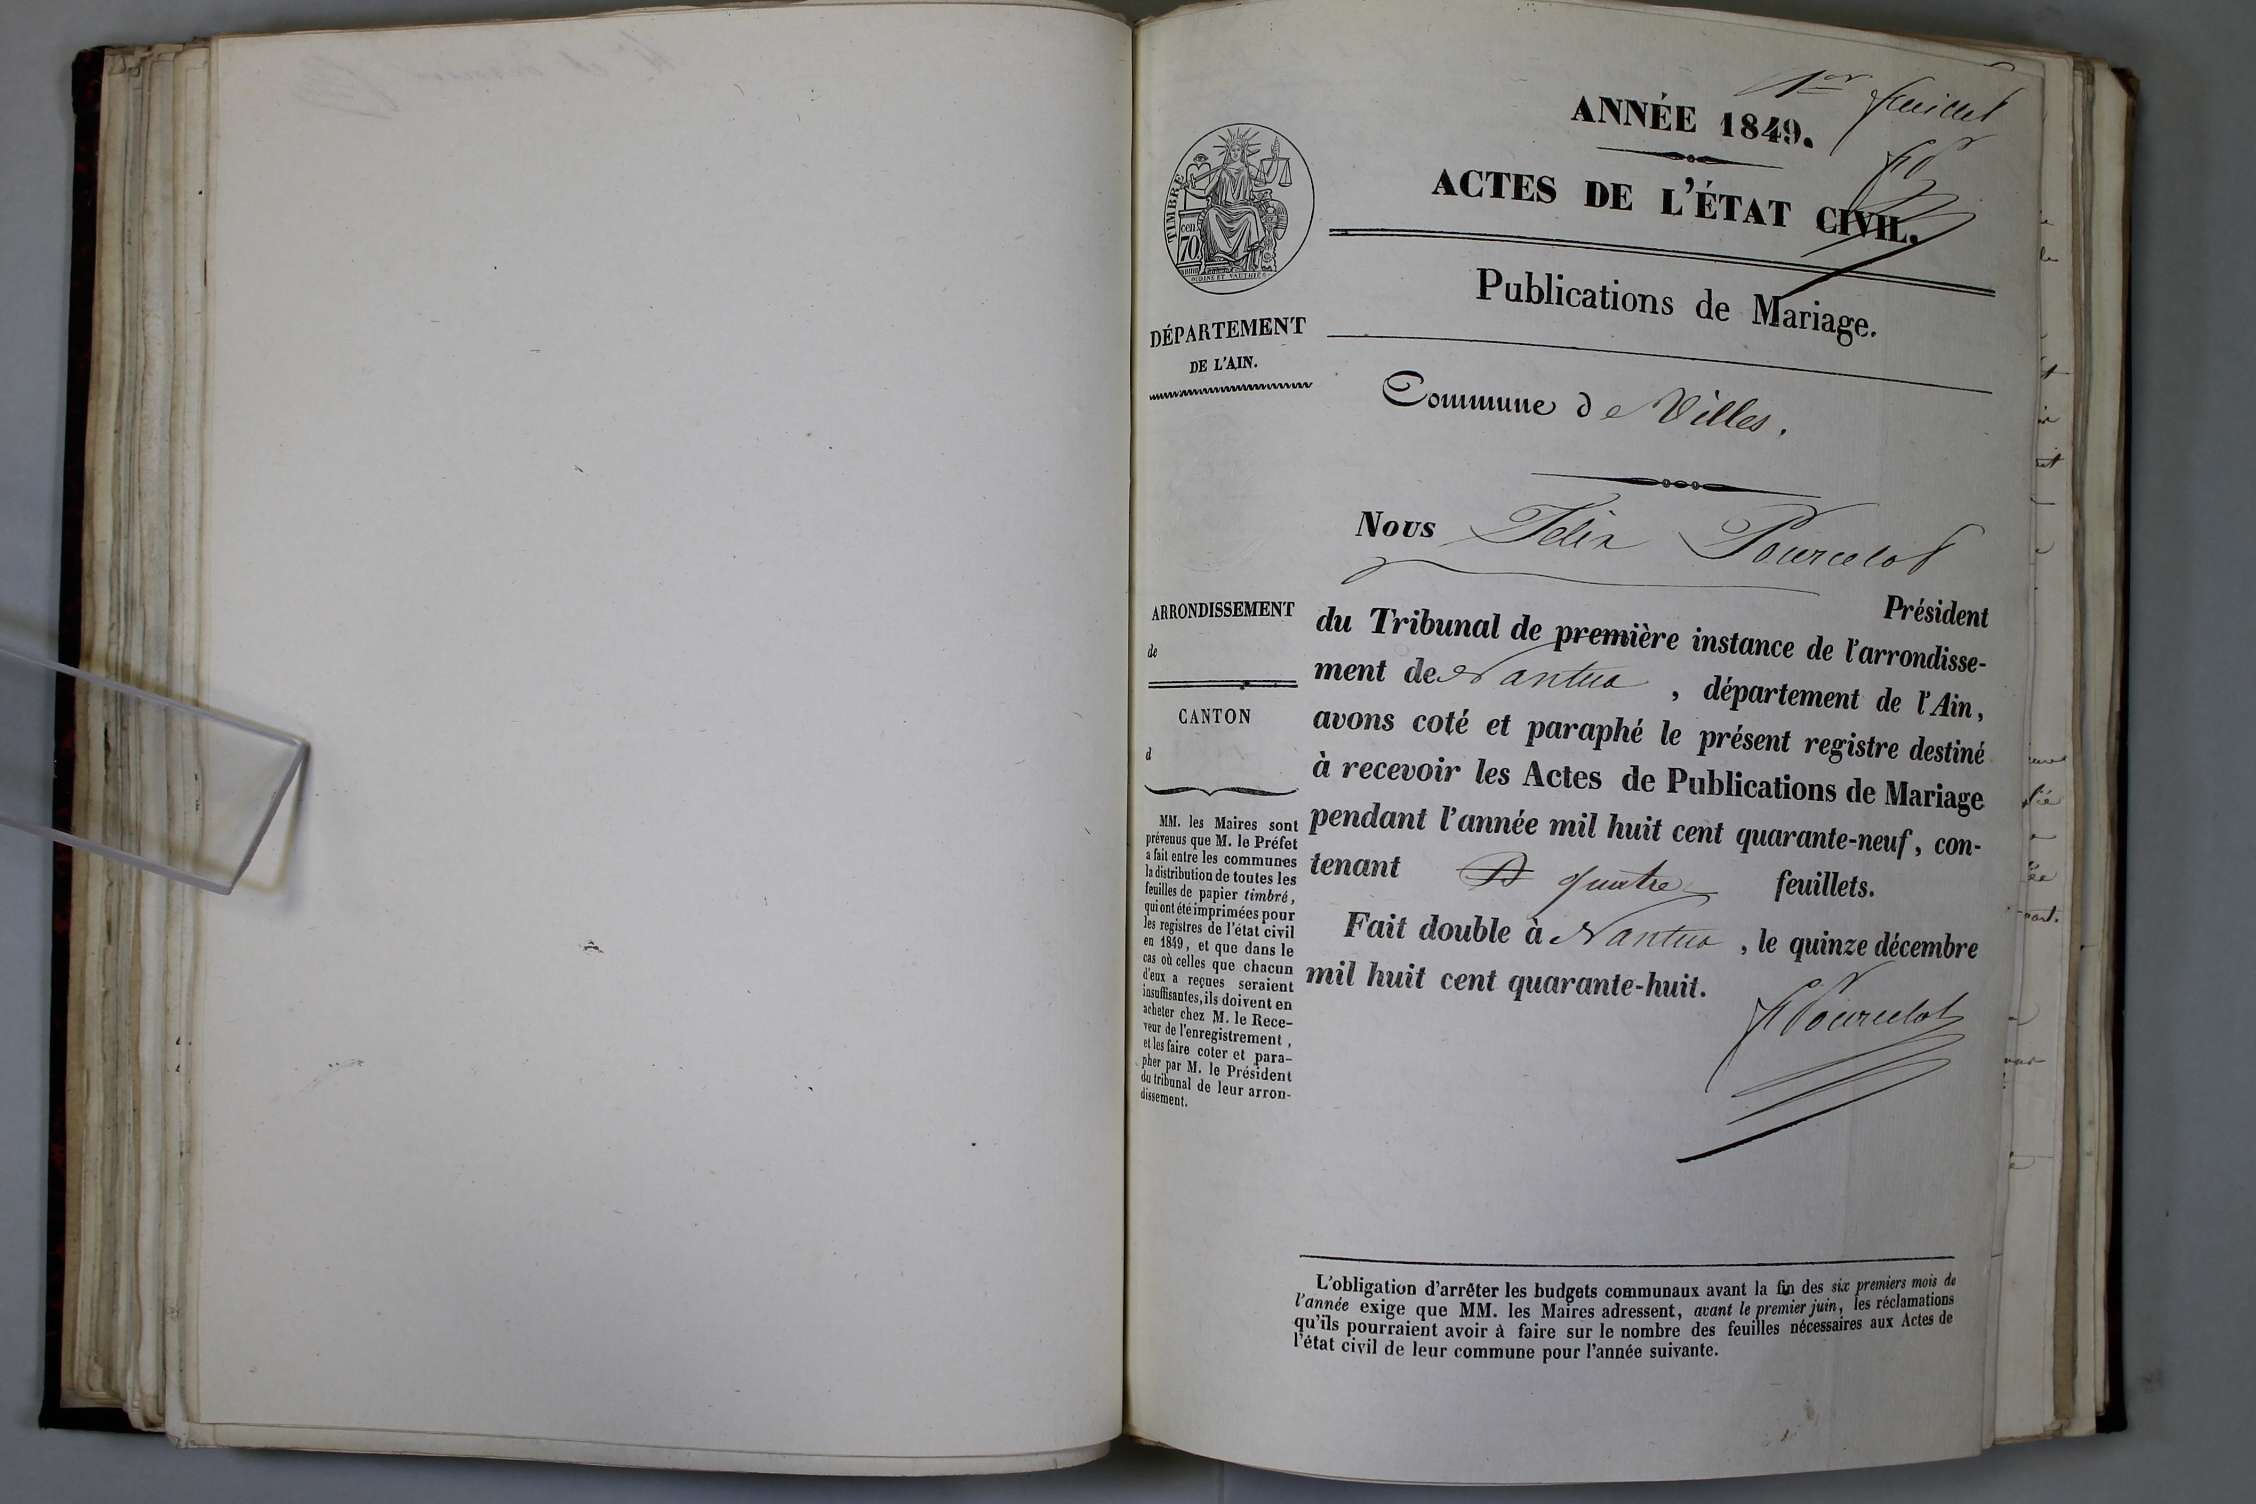 1er feuillet
FP
ANNÉE 1849.
ACTES DE L'ÉTAT CIVIL.
Publications de Mariage.
TIMBRE
70 cen.
DÉPARTEMENT
DE L'AIN.
Commune de Villes.
Nous Felix Pourcelot
Président
du Tribunal de première instance de l'arrondisse-
ment de Nantua, département de l'Ain,
avons coté et paraphé le présent registre destiné
à recevoir les Actes de Publications de Mariage
pendant l'année mil huit cent quarante-neuf, con-
tenant quatre feuillets.
Fait double à Nantua, le quinze décembre
mil huit cent quarante-huit.
FPourcelot
ARRONDISSEMENT
de
CANTON
d
MM. les Maires sont
prévenus que M. le Préfet
a fait entre les communes
la distribution de toutes les
feuilles de papier timbré,
qui ont été imprimées pour
les registres de l'état civil
en 1849, et que dans le
cas où celles que chacun
d'eux a reçues seraient
insuffisantes, ils doivent en
acheter chez M. le Rece-
veur de l'enregistrement,
et les faire coter et para-
pher par M. le Président
du tribunal de leur arron-
dissement.
L'obligation d'arrêter les budgets communaux avant la fin des six premiers mois de
l'année exige que MM. les Maires adressent, avant le premier juin, les réclamations
qu'ils pourraient avoir à faire sur le nombre des feuilles nécessaires aux Actes de
l'état civil de leur commune pour l'année suivante.